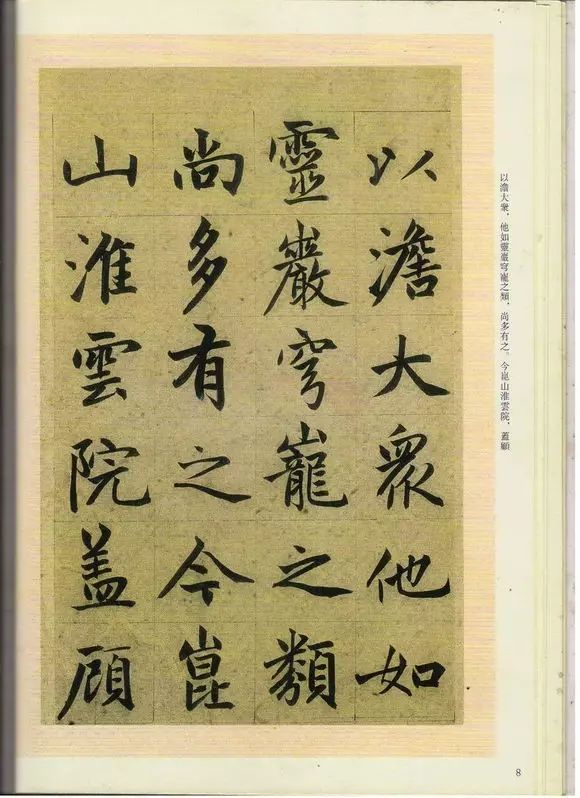 以澹大衆他如
靈巖穹巃之類
尚多有之今崑
山淮雲院盖顧
以澹大衆，他如靈巖穹巃之類，尚多有之。今崑山淮雲院，蓋顧
8